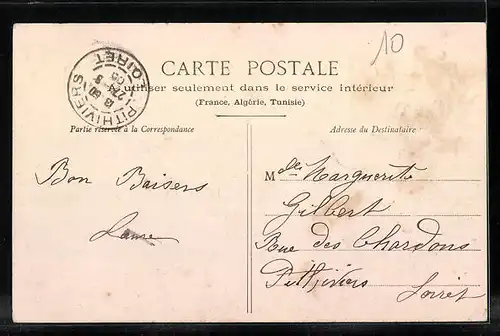 10
PITHIVIERS
LOIRET
CARTE POSTALE
A utiliser seulement dans le service intérieur
(France, Algérie, Tunisie)
Partie réservée à la Correspondance
Adresse du Destinataire :
Bon Baisers
Mdlle Marguerite
Gilbert
Rue des Chardons
Pithiviers
Loiret